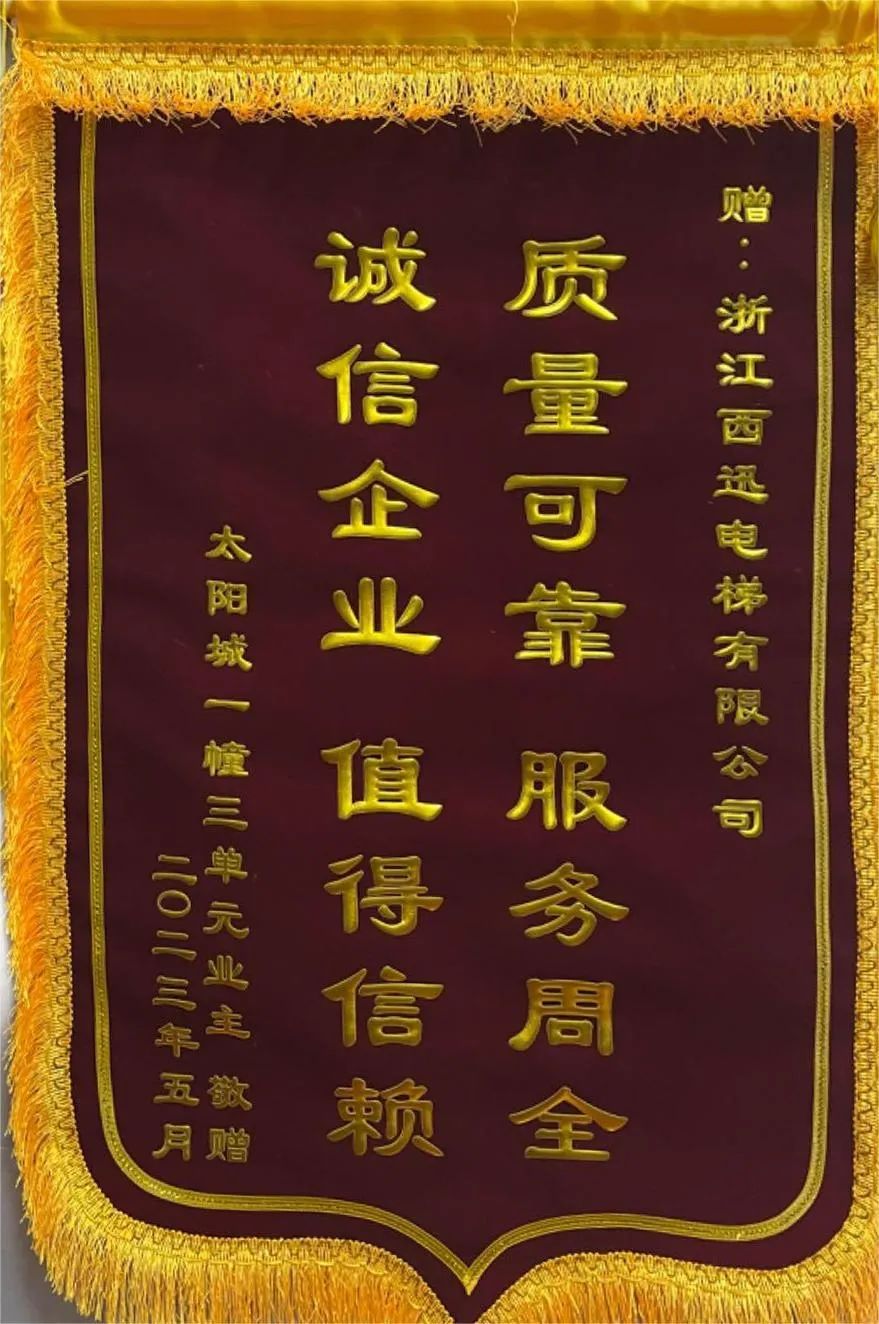 赠：浙江西迅电梯有限公司
质量可靠 服务周全
诚信企业 值得信赖
太阳城一幢三单元业主 敬赠
二〇二三年五月